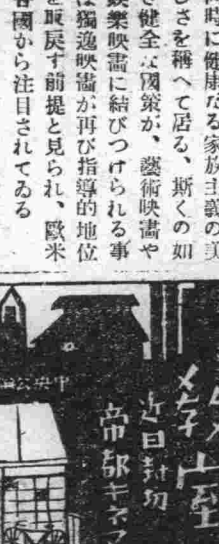 時に健康なる家族主義の美
しさを稱へて居る、斯くの如
き健全な國策が、藝術映畫や
娯樂映畫に結びつけられる事
は獨逸映畫が再び指導的地位
を取戻す前提と見られ、歐米
各國から注目されてゐる
近日封切
帝都キネマ
中央公